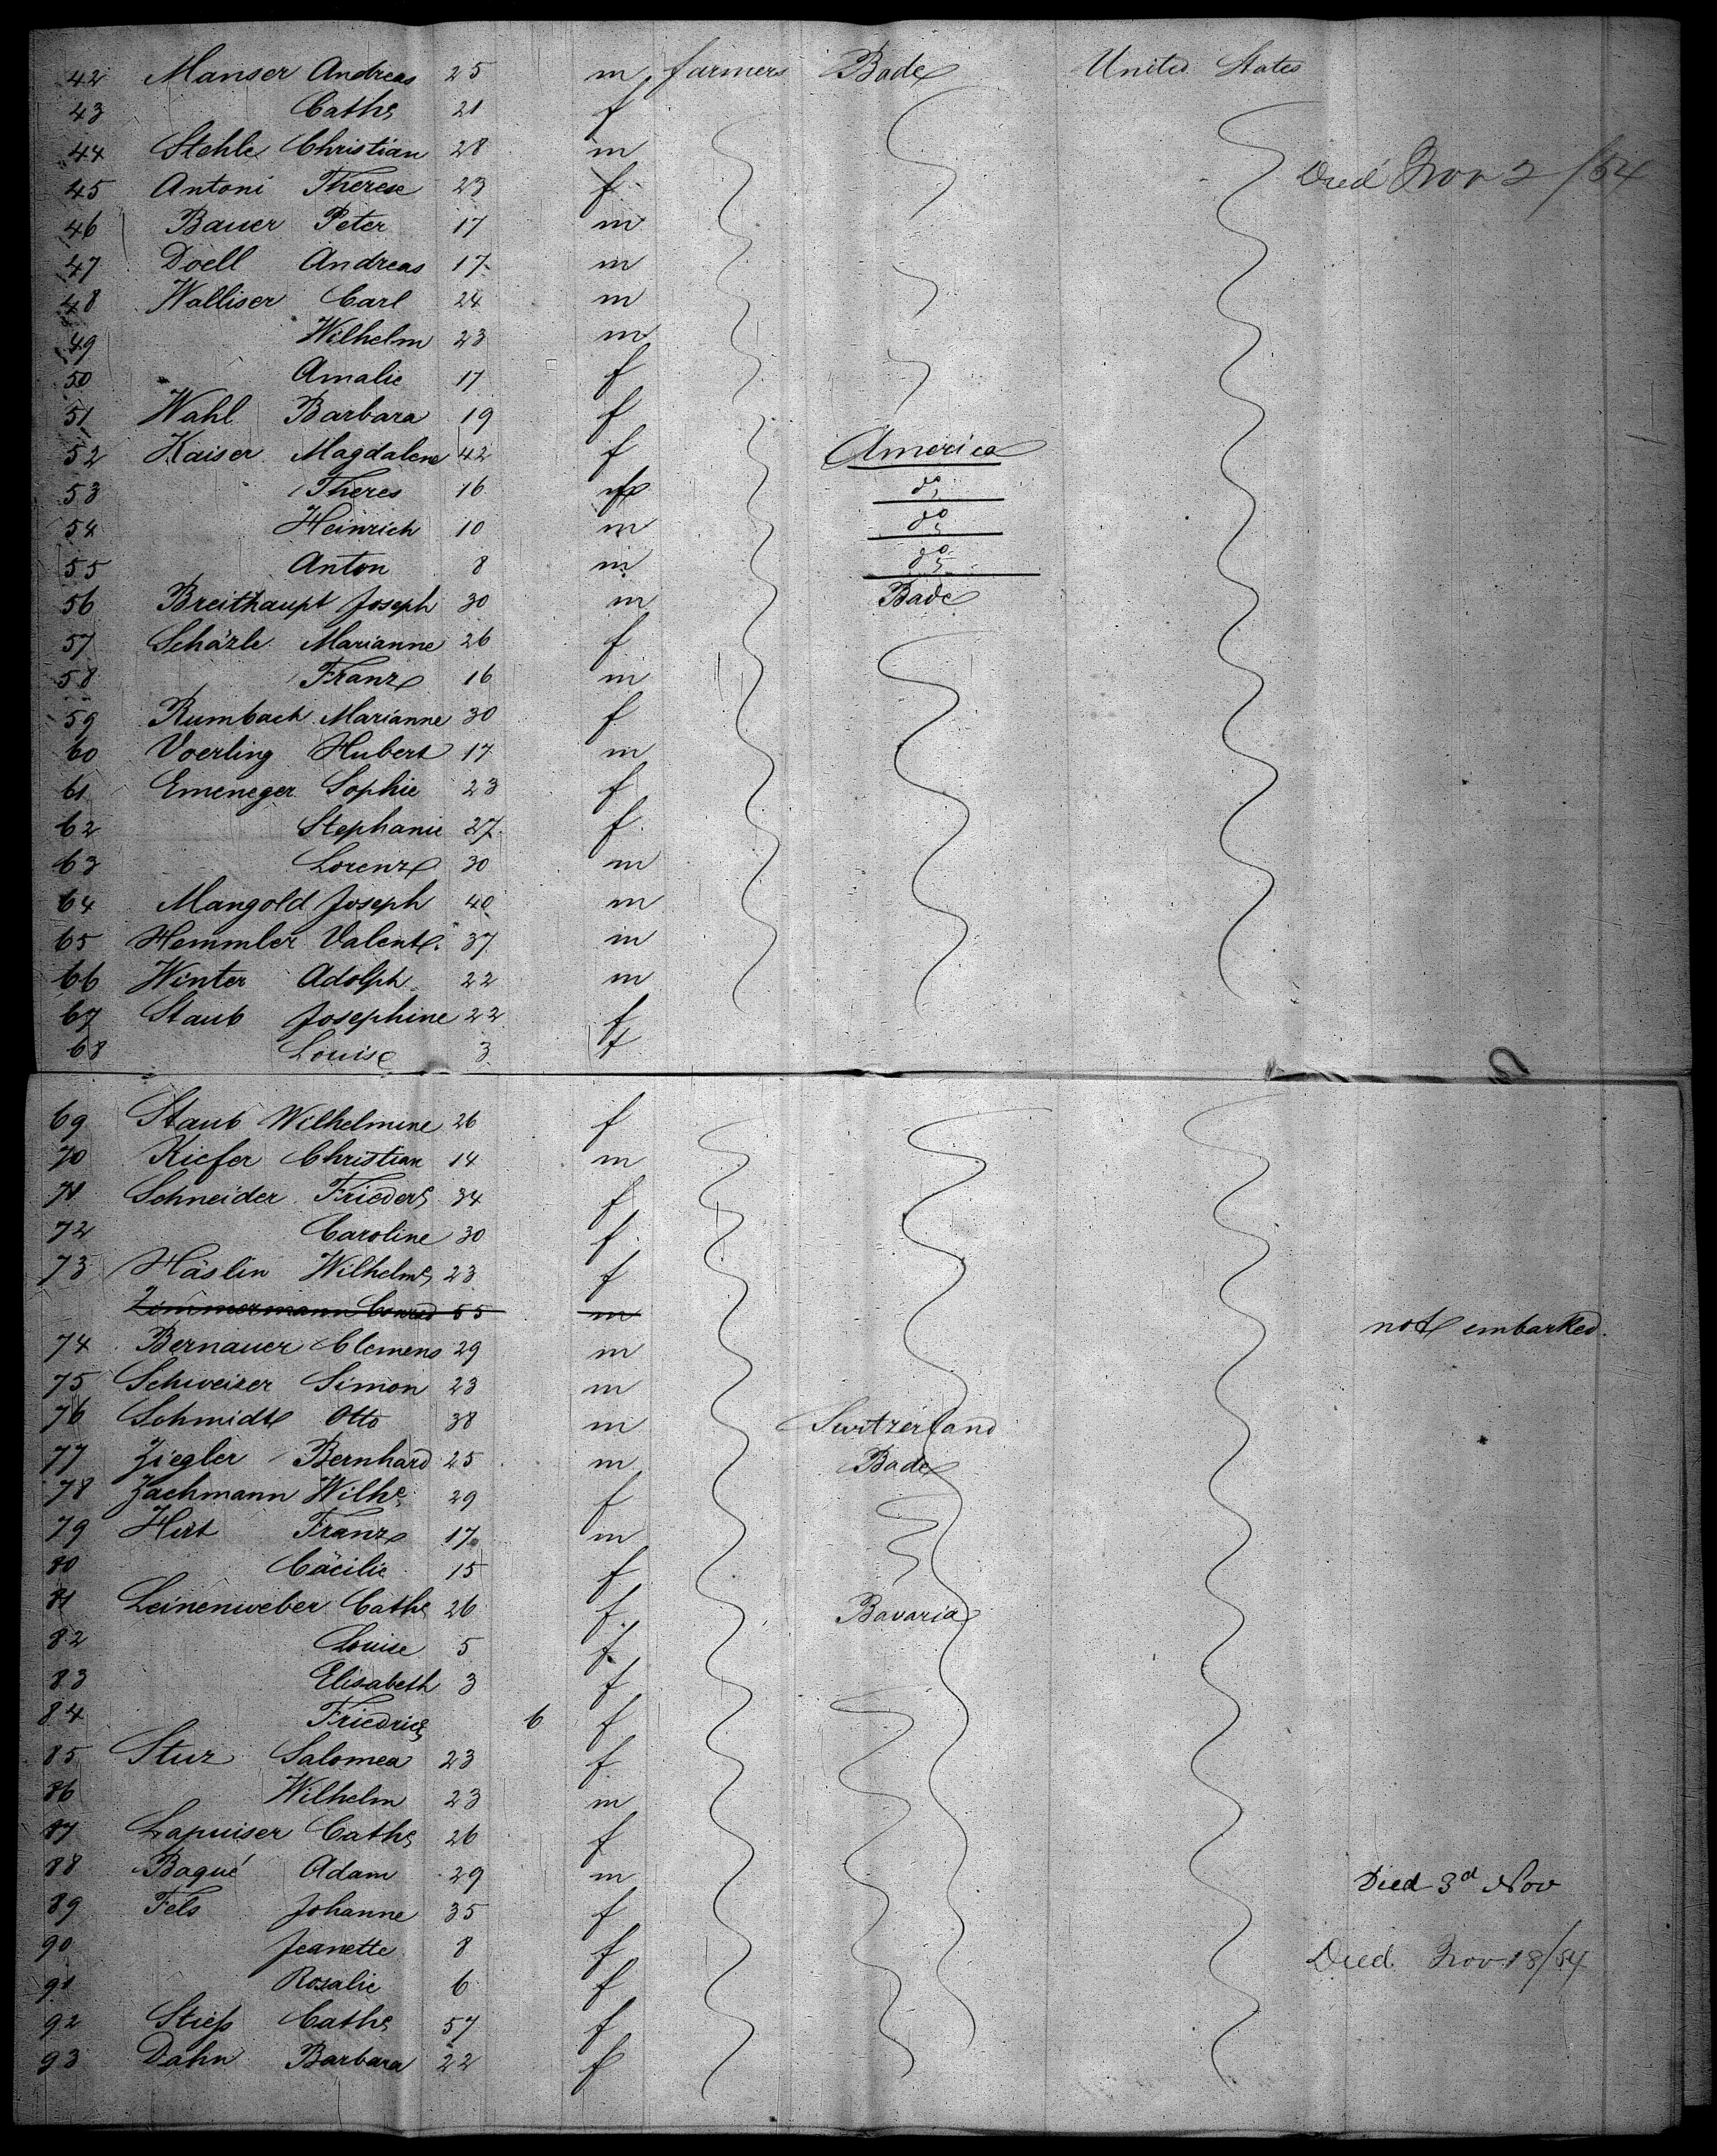 42 Manser Andreas 25 m farmers Bade United States
43 Cathe 21 f
44 Stehle Christian 28 m
45 Antoni Therese 23 f Died Nov 2/54
46 Bauer Peter 17 m
47 Doell Andreas 17 m
48 Walliser Carl 24 m
49 Wilhelm 23 m
50 Amalie 17 f
51 Wahl Barbara 19 f
52 Kaiser Magdalene 42 f America
53 Theres 16 f do
54 Heinrich 10 m do
55 Anton 8 m do
56 Breithaupt Joseph 30 m Bade
57 Schäzle Marianne 26 f
58 Franz 16 m
59 Rumbach Marianne 30 f
60 Voerling Hubert 17 m
61 Emeneger Sophie 23 f
62 Stephanie 27 f
63 Lorenz 30 m
64 Mangold Joseph 40 m
65 Hemmler Valent. 37 m
66 Winter Adolph 22 m
67 Staub Josephine 22 f
68 Louise 3 f
69 Staub Wilhelmine 26 f
70 Kiefer Christian 14 m
71 Schneider Frieder 34 f
72 Caroline 30 f
73 Häslin Wilhelme 23 f
Zimmermann Conrad 55 m not embarked.
74 Bernauer Clemens 29 m
75 Schweizer Simon 23 m
76 Schmidt Otto 38 m Switzerland
77 Ziegler Bernhard 25 m Bade
78 Zachmann Wilhe 29 f
79 Hirt Franz 17 m
80 Cäcilie 15 f
81 Leinenweber Cathe 26 f Bavaria
82 Louise 5 f
83 Elisabeth 3 f
84 Friedrice 6 f
85 Stur Salomea 23 f
86 Wilhelm 23 m
87 Lapuiser Cathe 26 f
88 Baqué Adam 29 m Died 3d Nov
89 Fels Johanne 35 f
90 Jeanette 8 f Died Nov 18/54
91 Rosalie 6 f
92 Stieß Cathe 57 f
93 Dahn Barbara 22 f